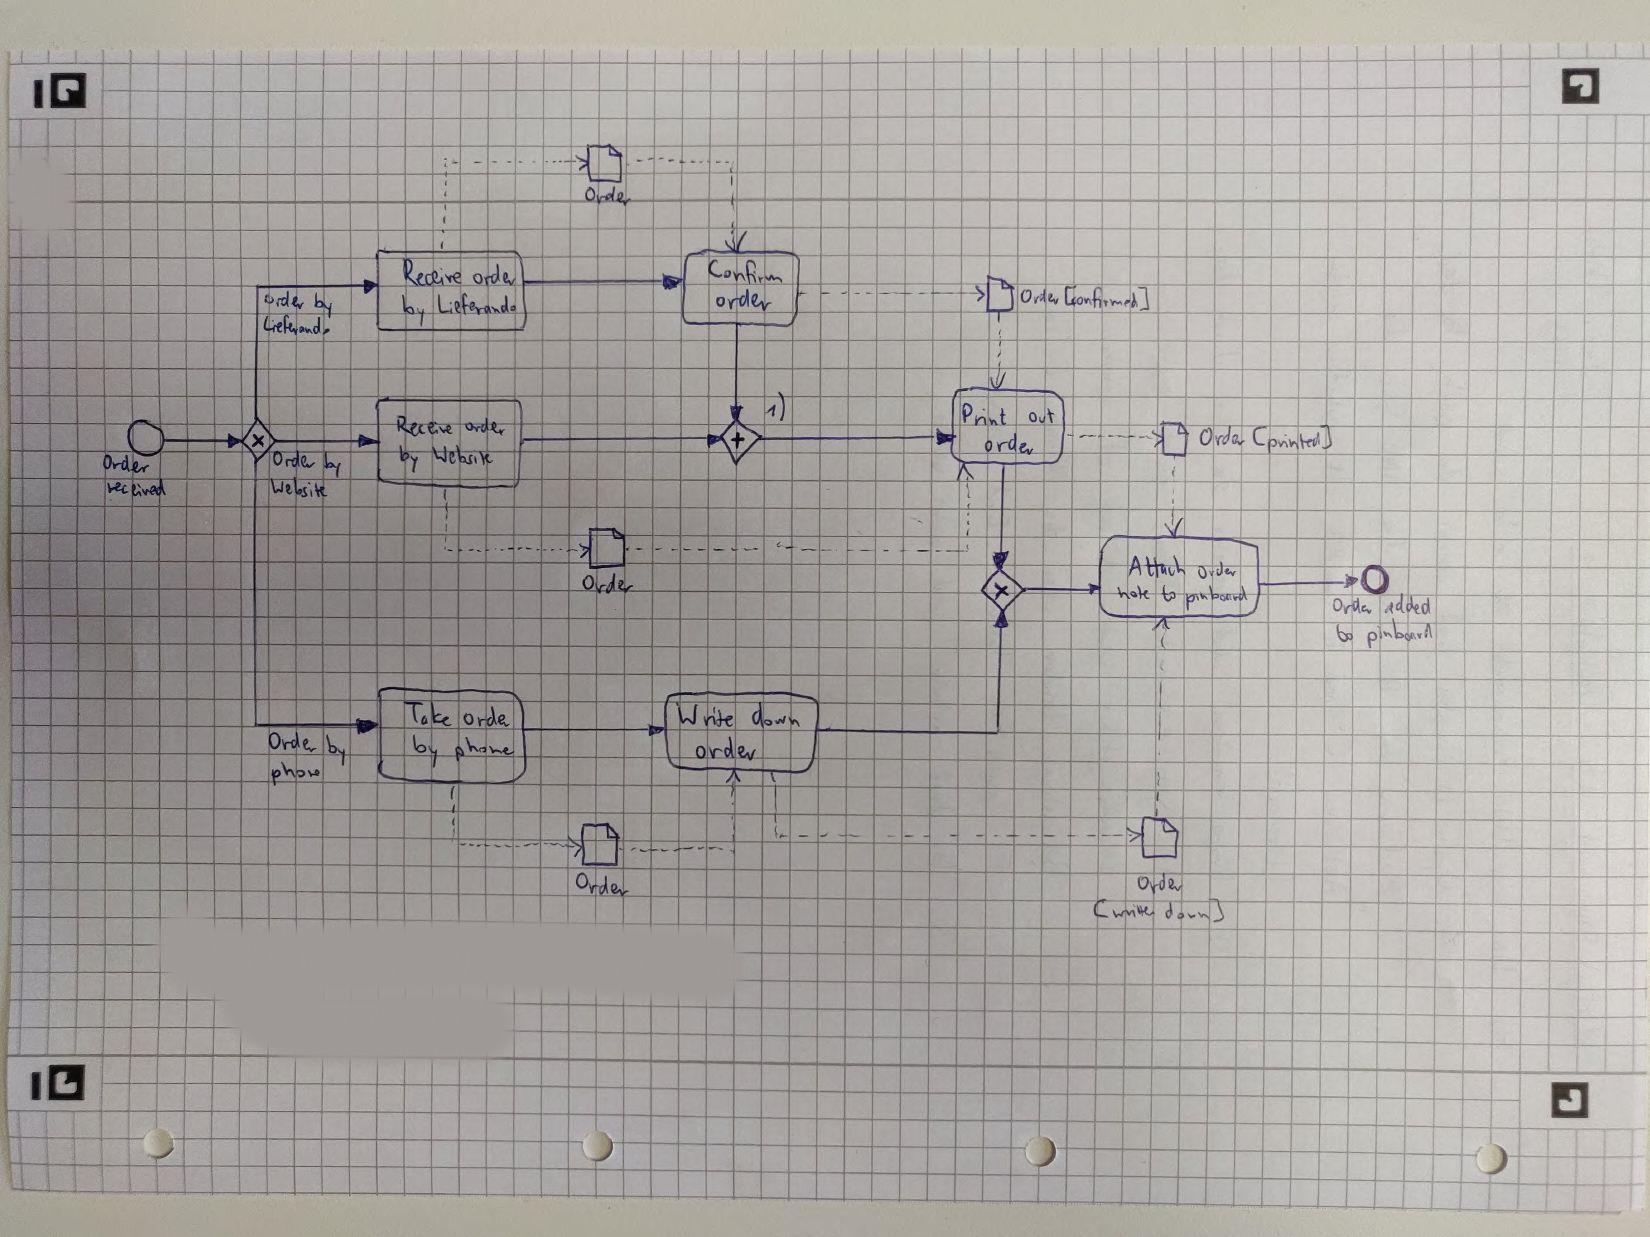 Order
Order
received
Order by
Lieferando
Receive order
by Lieferando
Confirm
order
Order [confirmed]
Order by
Website
Receive order
by Website
1)
Print out
order
Order [printed]
Order
Attach order
note to pinboard
Order added
to pinboard
Order by
phone
Take order
by phone
Write down
order
Order
Order
[written down]